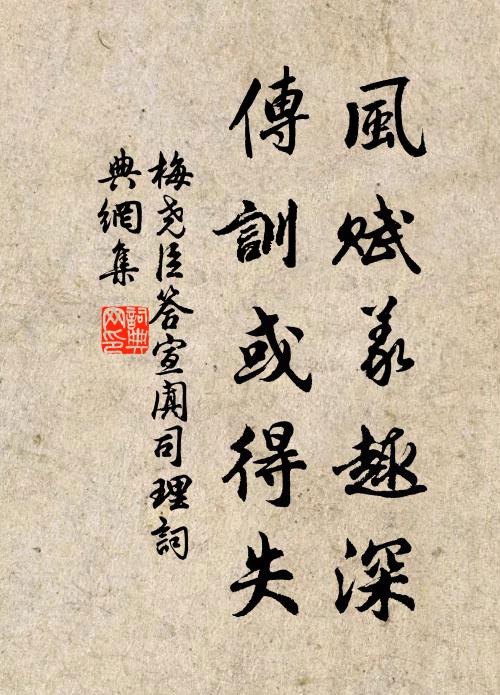 風賦義趣深
傳訓或得失
梅堯臣答宣闐司理詞
典網集
詞典
网印